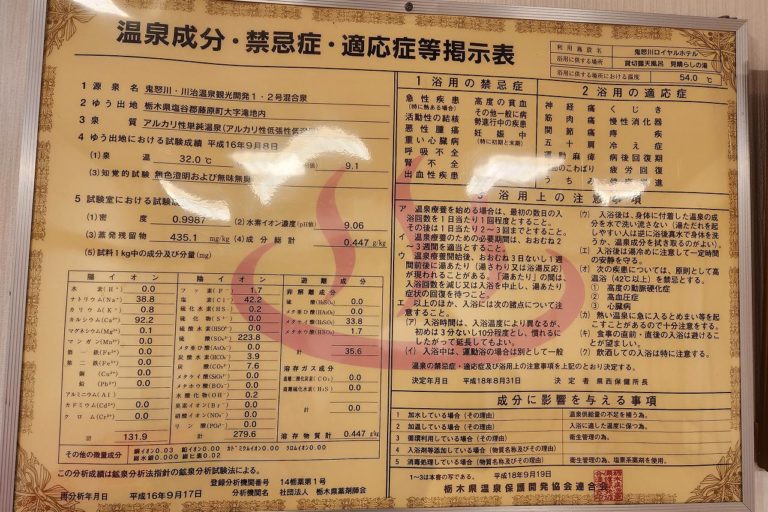 温泉成分・禁忌症・適応症等掲示表
利用施設名 鬼怒川ロイヤルホテル
浴用に供する場所 貸切露天風呂 見晴らしの湯
浴用に供する場所における温度 54.0 ℃
1 源泉名 鬼怒川・川治温泉観光開発1・2号混合泉
2 ゆう出地 栃木県塩谷郡藤原町大字滝地内
3 泉質 アルカリ性単純温泉(アルカリ性低張性低温
4 ゆう出地における試験成績 平成16年9月8日
(1)泉温 32.0℃ 9.1
(3)知覚的試験 無色澄明および無味無臭
5 試験室における試験
(1)密度 0.9987 (2)水素イオン濃度(pH値) 9.06
(3)蒸発残留物 435.1 mg/kg (4)成分総計 0.447 g/kg
(5)試料1kg中の成分及び分量(mg)
陽イオン
水素(H⁺) 0.0
ナトリウム(Na⁺) 38.8
カリウム(K⁺) 0.8
カルシウム(Ca²⁺) 92.2
マグネシウム(Mg²⁺) 0.1
マンガン(Mn²⁺) 0.0
第一鉄(Fe²⁺) 0.0
第二鉄(Fe³⁺) 0.0
銅(Cu²⁺) 0.0
鉛(Pb²⁺) 0.0
アルミニウム(Al)
カドミウム(Cd²⁺) 0.0
クロム(Cr³⁺) 0.0
計 131.9
陰イオン
フッ素(F⁻) 1.7
塩素(Cl⁻) 42.2
硫化水素(HS⁻) 0.0
硫化物(S²⁻) 0.0
硫酸水素(HSO₄⁻) 0.0
硫酸(SO₄²⁻) 223.8
メタ亜ヒ酸(AsO₂⁻) 0.0
炭酸水素(HCO₃⁻) 3.9
炭酸(CO₃²⁻) 7.8
メタケイ酸(SiO₃²⁻) 0.0
メタホウ酸(BO₂⁻) 0.0
水酸化物(OH⁻) 0.2
臭素イオン(Br⁻) 0.0
硝酸イオン(NO₃⁻) 0.0
リン酸(PO₄³⁻) 0.0
計 279.6
遊離成分
非解離成分
硫酸(H₂SO₄) 0.0
メタ亜ヒ酸(HAsO₂) 0.0
メタケイ酸(H₂SiO₃) 33.8
メタホウ酸(HBO₂) 1.7
計 35.6
溶存ガス成分
遊離二酸化炭素(CO₂) 0.0
遊離硫化水素(H₂S) 0.0
計 0.0
溶存物質計 0.447 g/kg
その他の微量成分
この分析成績は鉱泉分析法指針の鉱泉分析試験法による。
登録分析機関番号 14栃薬第1号
再分析年月日 平成16年9月17日 分析機関名 社団法人 栃木県薬剤師会
1 浴用の禁忌症
急性疾患(特に熱ある場合) 高度の貧血
活動性の結核 その他一般に病勢進行中の疾患
悪性腫瘍
重い心臓病 妊娠中(特に初期と末期)
呼吸不全
腎不全
出血性疾患
2 浴用の適応症
神経痛 くじき
筋肉痛 慢性消化器
関節痛 痔疾
五十肩 冷え症
運動麻痺 病後回復期
のこわばり 疲労回復
うちみ 健康増進
浴用上の注意事項
ア 温泉療養を始める場合は、最初の数日の入浴回数を1日当たり1回程度とすること。その後は1日当たり2〜3回までとすること。
イ 温泉療養のための必要期間は、おおむね2〜3週間を適当とすること。
ウ 温泉療養開始後、おおむね3日ないし1週間前後に湯あたり(湯さわり又は浴湯反応)が現われることがある。「湯あたり」の間は、入浴回数を減じ又は入浴を中止し、湯あたり症状の回復を待つこと。
エ 以上のほか、入浴には次の諸点について注意すること。
(ア)入浴時間は、入浴温度により異なるが、初めは3分ないし10分程度とし、慣れるにしたがって延長してもよい。
(イ)入浴中は、運動浴の場合は別として一般
(ウ)入浴後は、身体に付着した温泉の成分を水で洗い流さない(湯ただれを起しやすい人は逆に浴後真水で身体を洗うか、温泉成分を拭き取るのがよい)。
(エ)入浴後は湯冷めに注意して一定時間の安静を守る。
(オ)次の疾患については、原則として高温浴(42℃以上)を禁忌とする。
① 高度の動脈硬化症
② 高血圧症
③ 心臓病
(カ)熱い温泉に急に入るとめまい等を起こすことがあるので十分注意をする。
(キ)食事の直前・直後の入浴は避けることが望ましい。
(ク)飲酒しての入浴は特に注意する。
温泉の禁忌症・適応症及び浴用上の注意事項を上記のとおり決定する。
決定年月日 平成18年8月31日 決定者 県西保健所長
成分に影響を与える事項
1 加水している場合(その理由) 温泉供給量の不足を補う為。
2 加温している場合(その理由) 入浴に適した温度に保つ為。
3 循環利用している場合(その理由) 衛生管理の為。
4 入浴剤等添加している場合(物質名称及びその理由)
5 消毒処理している場合(物質名称及びその理由) 衛生管理の為、塩素系薬剤を使用。
1〜3は本書の写である。 平成18年9月19日
栃木県温泉保護開発協会連合会